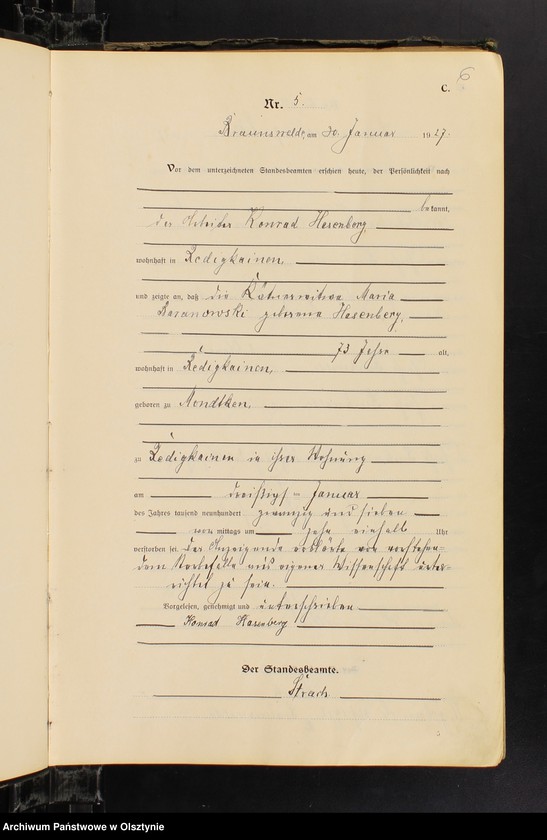 6
C.
Nr. 5.
Braunswalde, am 30. Januar 1927.
Vor dem unterzeichneten Standesbeamten erschien heute, der Persönlichkeit nach
bekannt,
der Arbeiter Konrad Hasenberg,
wohnhaft in Redigkainen,
und zeigte an, daß die Kätnerwitwe Maria
Baranowski geborene Hasenberg,
73 Jahre alt,
wohnhaft in Redigkainen,
geboren zu Mondtken,
zu Redigkainen in ihrer Wohnung
am dreißigsten Januar
des Jahres tausend neunhundert zwanzig und sieben
vormittags um zehn einhalb Uhr
verstorben sei. Der Anzeigende erklärte von vorstehen-
dem Sterbefalle aus eigener Wissenschaft unter-
richtet zu sein.
Vorgelesen, genehmigt und unterschrieben
Konrad Hasenberg
Der Standesbeamte.
Archiwum Państwowe w Olsztynie